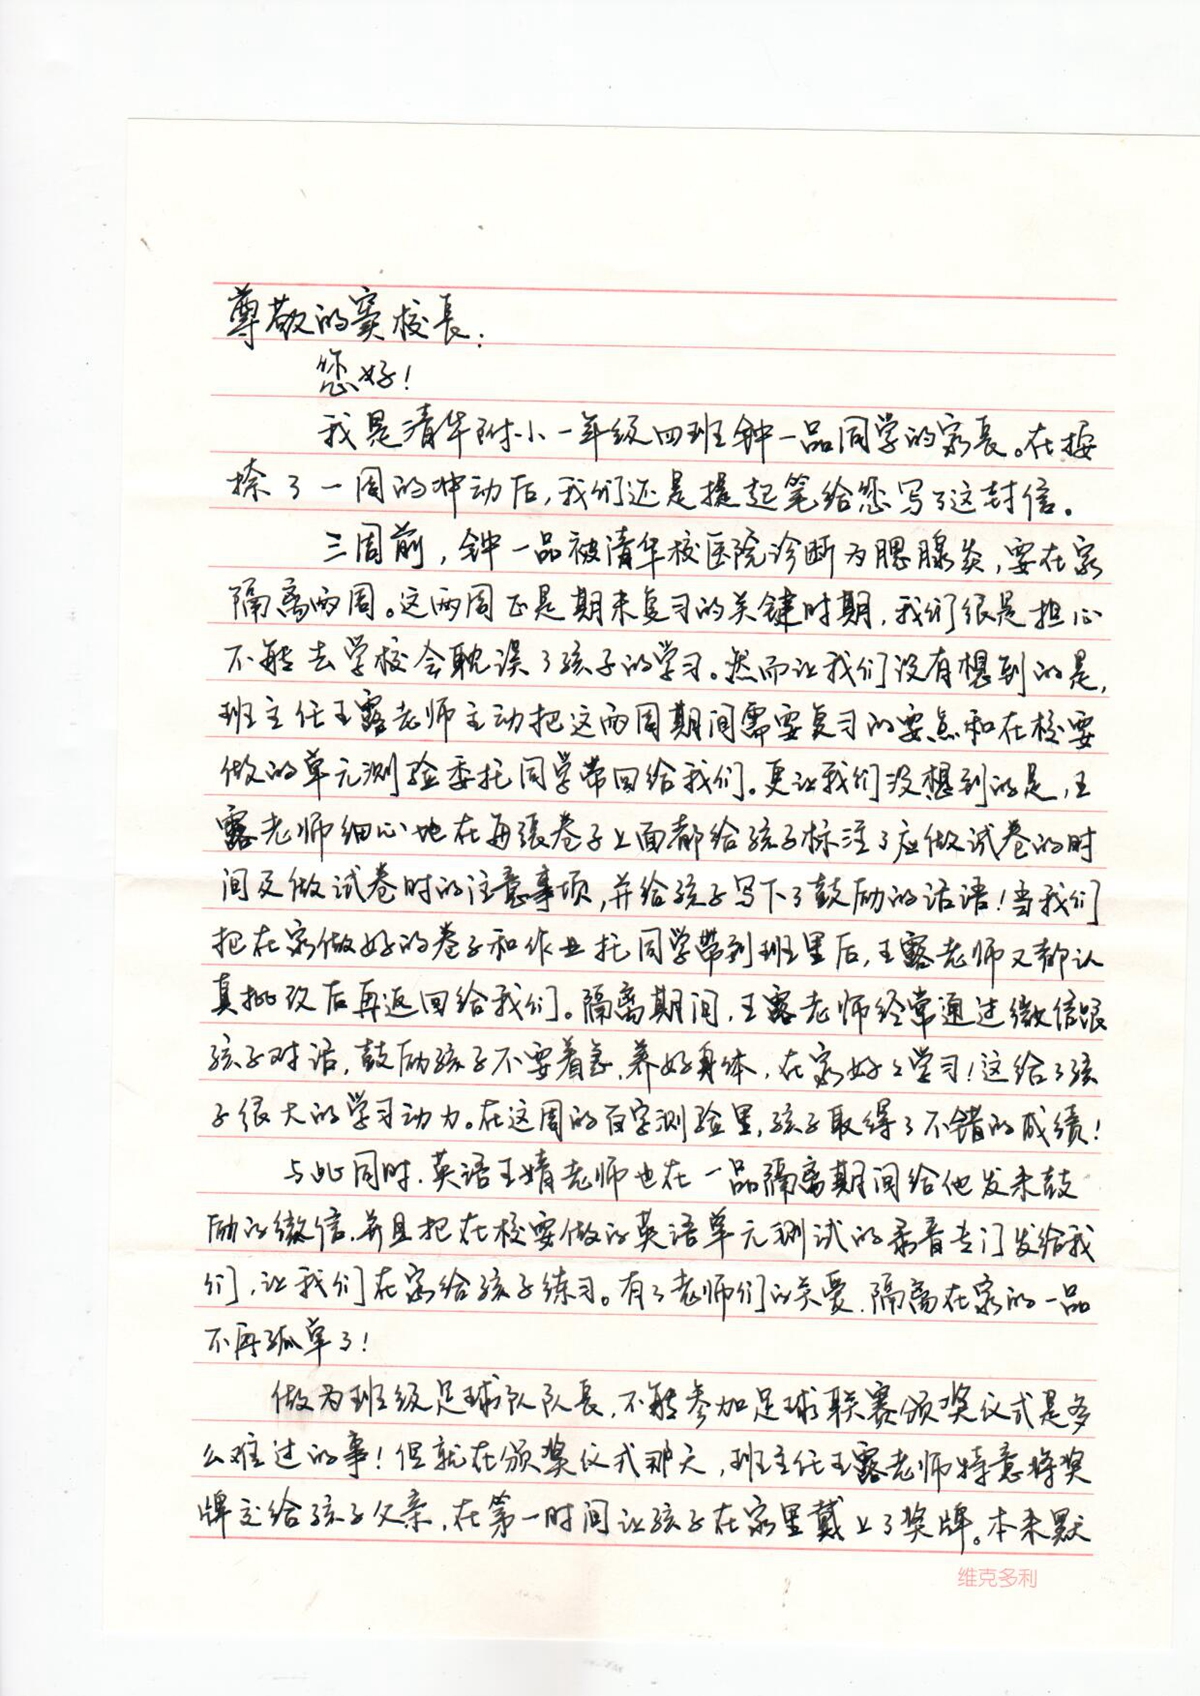 尊敬的窦校长：
您好！
我是清华附小一年级四班钟一品同学的家长。在按
捺了一周的冲动后，我们还是提起笔给您写了这封信。
三周前，钟一品被清华校医院诊断为腮腺炎，要在家
隔离两周。这两周正是期末复习的关键时期，我们很是担心
不能去学校会耽误了孩子的学习。然而让我们没有想到的是，
班主任王露老师主动把这两周期间需要复习的要点和在校要
做的单元测验委托同学带回给我们。更让我们没想到的是，王
露老师细心地在每张卷子上面都给孩子标注了应做试卷的时
间及做试卷时的注意事项，并给孩子写下了鼓励的话语！当我们
把在家做好的卷子和作业托同学带到班里后，王露老师又都认
真批改后再返回给我们。隔离期间，王露老师经常通过微信跟
孩子对话，鼓励孩子不要着急，养好身体，在家好好学习！这给了孩
子很大的学习动力。在这周的百字测验里，孩子取得了不错的成绩！
与此同时，英语王婧老师也在一品隔离期间给他发来鼓
励的微信，并且把在校要做的英语单元测试的录音专门发给我
们，让我们在家给孩子练习。有了老师们的关爱，隔离在家的一品
不再孤单了！
做为班级足球队队长，不能参加足球联赛颁奖仪式是多
么难过的事！但就在颁奖仪式那天，班主任王露老师特意将奖
牌交给孩子父亲，在第一时间让孩子在家里戴上了奖牌。本来默
维克多利